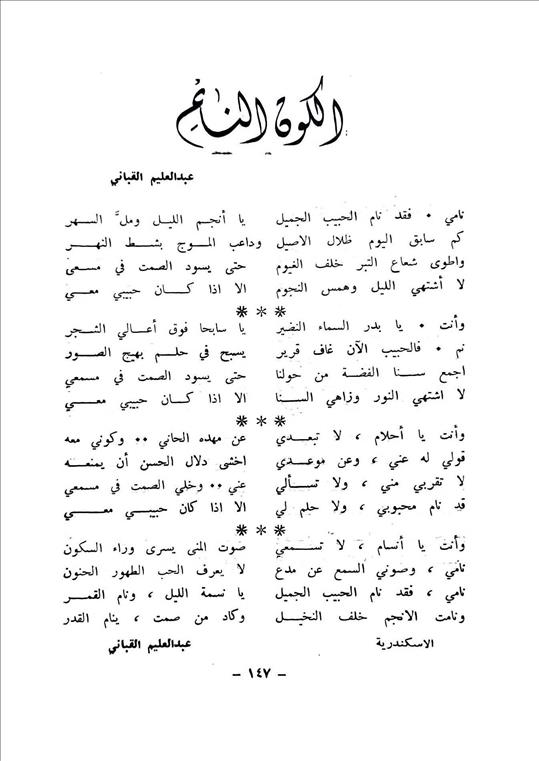 الكون النائم
عبدالعليم القباني
نامي . فقد نام الحبيب الجميل يا أنجم الليل وملَّ السهر
كم سابق اليوم ظلال الاصيل وداعب الموج بشط النهر
واطوى شعاع التبر خلف الغيوم حتى يسود الصمت في مسمعى
لا أشتهي الليل وهمس النجوم الا اذا كان حبيبي معي
* * *
وأنت . يا بدر السماء النضير يا سابحا فوق أعالي الشجر
نم . فالحبيب الآن غاف قرير يسبح في حلم بهيج الصور
اجمع سنا الفضة من حولنا حتى يسود الصمت في مسمعي
لا اشتهي النور وزاهي السنا الا اذا كان حبيبي معي
* * *
وأنت يا أحلام ، لا تبعدي عن مهده الحاني .. وكوني معه
قولي له عني ، وعن موعدي اخشى دلال الحسن أن يمنعه
لا تقربي مني ، ولا تسألي عني .. وخلي الصمت في مسمعي
قد نام محبوبي ، ولا حلم لي الا اذا كان حبيبي معي
* * *
وأنت يا أنسام ، لا تسمعي صوت المنى يسرى وراء السكون
نامي ، وصوني السمع عن مدع لا يعرف الحب الطهور الحنون
نامي ، فقد نام الحبيب الجميل يا نسمة الليل ، ونام القمر
ونامت الانجم خلف النخيل وكاد من صمت ، ينام القدر
الاسكندرية عبدالعليم القباني
- ١٤٧ -